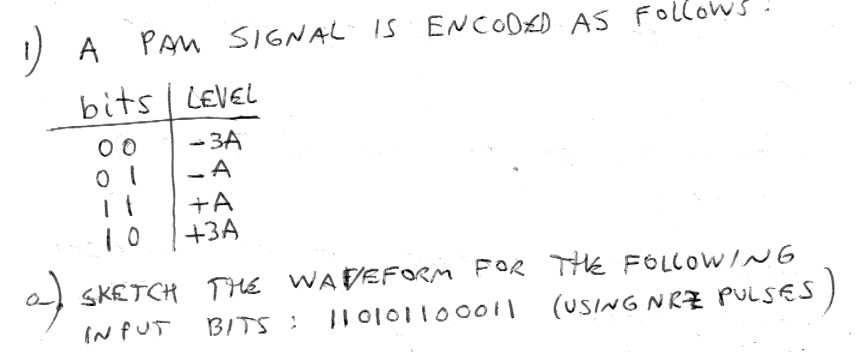 1) A PAM SIGNAL IS ENCODED AS FOLLOWS:
bits | LEVEL
00 | -3A
01 | -A
11 | +A
10 | +3A
a) SKETCH THE WAVEFORM FOR THE FOLLOWING
INPUT BITS: 110101100011 (USING NRZ PULSES)